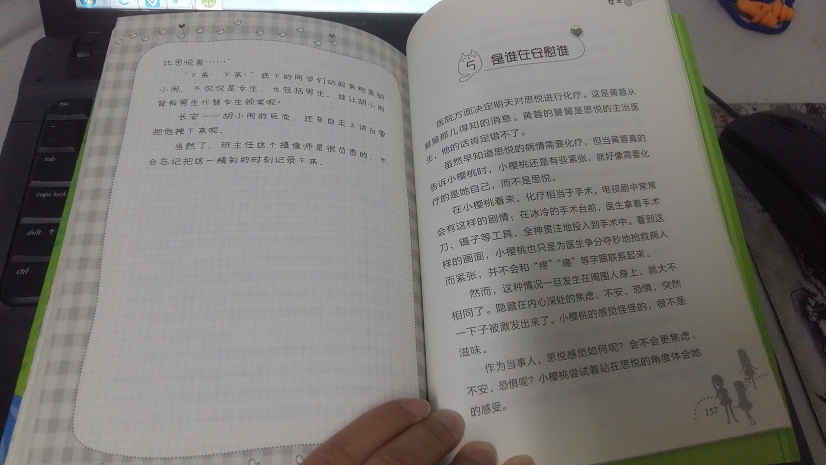 比思悦差……”
“下来，下来！”底下的同学们站起来抱着胡
小闹，不仅仅是女生，也包括男生。谁让胡小闹
背叛男生代替女生领奖呢？
长安——胡小闹的死党，还亲自走上讲台要
把他拽下来呢。
当然了，班主任这个摄像师是很负责的，不
会忘记把这一精彩的时刻记录下来。
5 是谁在安慰谁
医院方面决定明天对思悦进行化疗。这是黄蓉从
舅舅那儿得知的消息。黄蓉的舅舅是思悦的主治医
生，他的话肯定错不了。
虽然早知道思悦的病情需要化疗，但当黄蓉真的
告诉小樱桃时，小樱桃还是有些紧张，就好像需要化
疗的是她自己，而不是思悦。
在小樱桃看来，化疗相当于手术。电视剧中常常
会有这样的剧情：在冰冷的手术台前，医生拿着手术
刀、镊子等工具，全神贯注地投入到手术中。看到这
样的画面，小樱桃也只是为医生争分夺秒地抢救病人
而紧张，并不会和“疼”“痛”等字眼联系起来。
然而，这种情况一旦发生在周围人身上，就大不
相同了。隐藏在内心深处的焦虑、不安、恐惧，突然
一下子被激发出来了。小樱桃的感觉怪怪的，很不是
滋味。
作为当事人，思悦感觉如何呢？会不会更焦虑、
不安、恐惧呢？小樱桃尝试着站在思悦的角度体会她
的感受。
157
caps lock
shift
ctrl